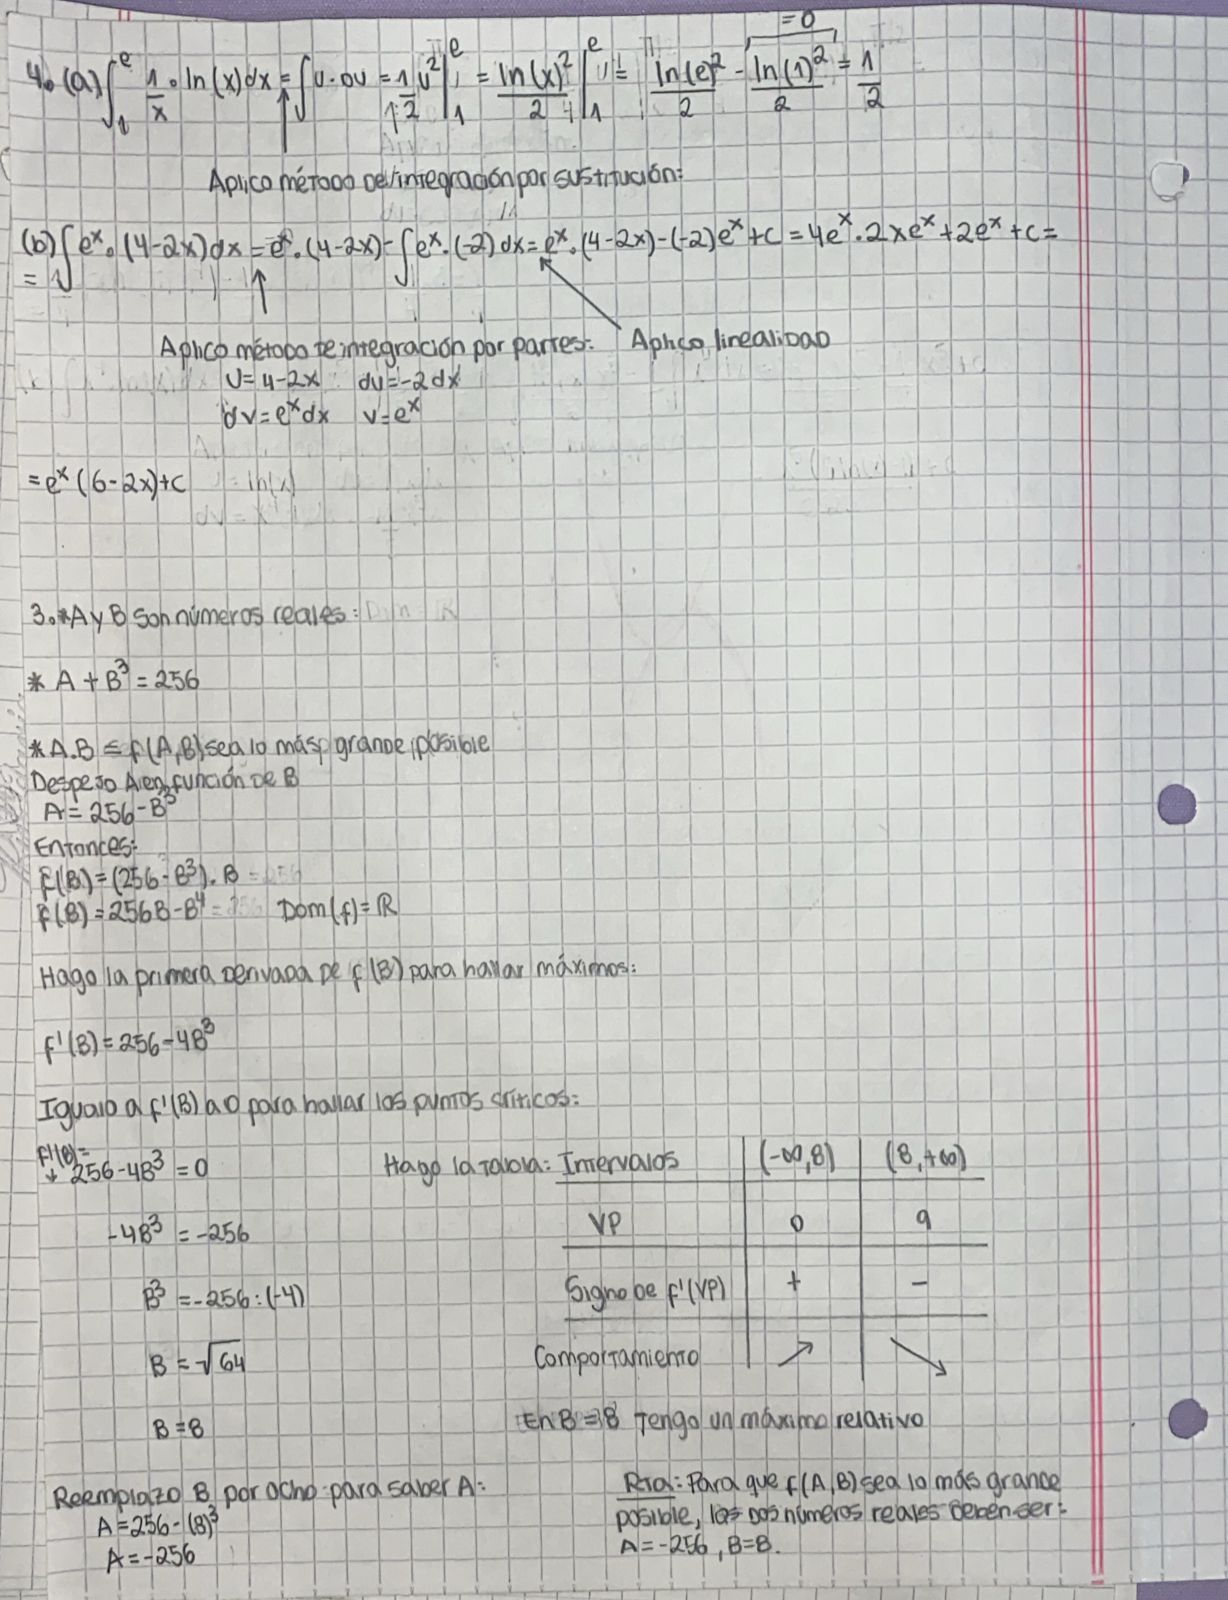 4. (a) ∫₁ᵉ 1/x · ln(x) dx = ∫ u · du = 1/2 u² |₁ᵉ = ln(x)²/2 |₁ᵉ = ln(e)²/2 - ln(1)²/2 = 1/2
= 0
Aplico método de integración por sustitución:
(b) ∫ eˣ · (4-2x) dx = eˣ · (4-2x) - ∫ eˣ · (-2) dx = eˣ · (4-2x) - (-2)eˣ + c = 4eˣ · 2xeˣ + 2eˣ + c =
=
Aplico método de integración por partes: Aplico linealidad
u = 4-2x du = -2dx
dv = eˣdx v = eˣ
= eˣ (6-2x) + c
3. * A y B son números reales:
* A + B³ = 256
* A.B = f(A,B) sea lo más grande posible
Despejo A en función de B
A = 256 - B³
Entonces:
f(B) = (256 - B³) . B
f(B) = 256B - B⁴ Dom(f) = ℝ
Hago la primera derivada de f(B) para hallar máximos:
f'(B) = 256 - 4B³
Igualo a f'(B) a 0 para hallar los puntos críticos:
f'(B) =
↓ 256 - 4B³ = 0 Hago la tabla: Intervalos (-∞,8) (8,+∞)
-4B³ = -256 VP 0 9
B³ = -256 : (-4) Signo de f'(VP) + -
B = √64 Comportamiento ↗ ↘
B = 8 En B = 8 tengo un máximo relativo
Reemplazo B por ocho para saber A: Rta: Para que f(A,B) sea lo más grande
A = 256 - (8)³ posible, los dos números reales deben ser:
A = -256 A = -256, B = 8.